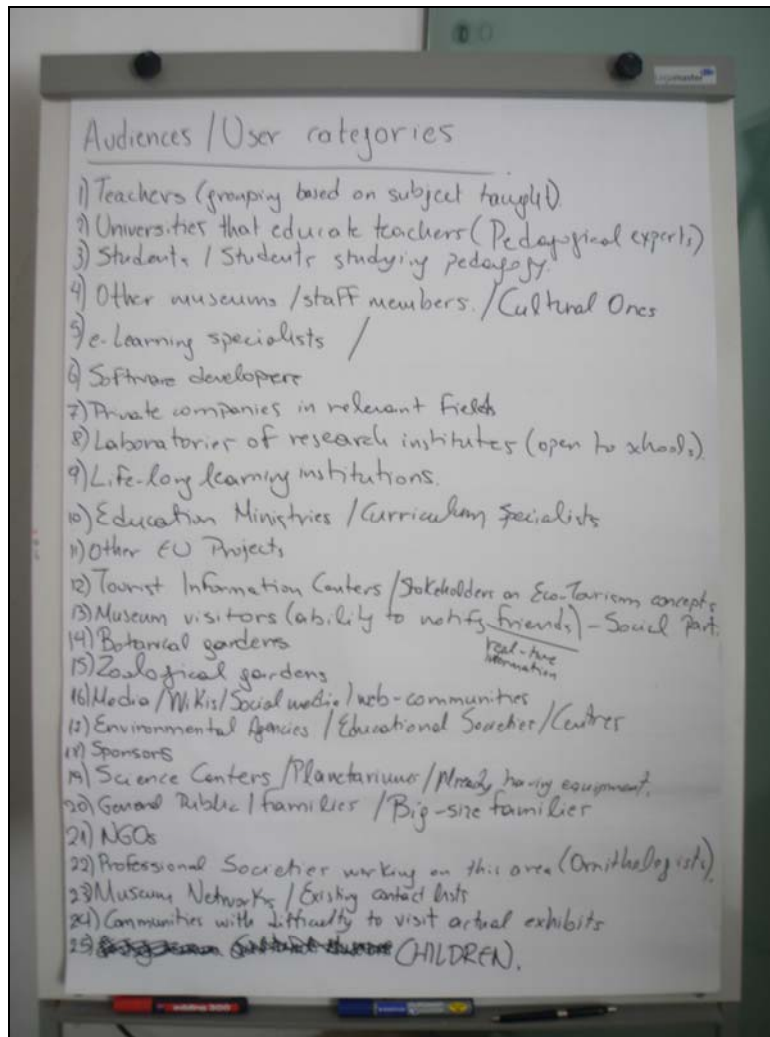 Legamaster
Audiences / User categories
1) Teachers (grouping based on subject taught).
2) Universities that educate teachers (Pedagogical experts)
3) Students / Students studying pedagogy.
4) Other museums / staff members. / Cultural Ones
5) e-Learning specialists /
6) Software developers
7) Private companies in relevant fields
8) Laboratories of research institutes (open to schools).
9) Life-long learning institutions.
10) Education Ministries / Curriculum Specialists
11) Other EU Projects
12) Tourist Information Centers / Stakeholders on Eco-Tourism concepts
13) Museum visitors (ability to notify friends) - Social Part.
real-time
information
14) Botanical gardens
15) Zoological gardens
16) Media / Wikis / Social media / web-communities
17) Environmental Agencies / Educational Societies / Centres
18) Sponsors
19) Science Centers / Planetariums / Already having equipment.
20) General Public / families / Big-size families
21) NGOs
22) Professional Societies working on this area (Ornithologists).
23) Museum Networks / Existing contact lists
24) Communities with difficulty to visit actual exhibits
25) CHILDREN.
edding 500